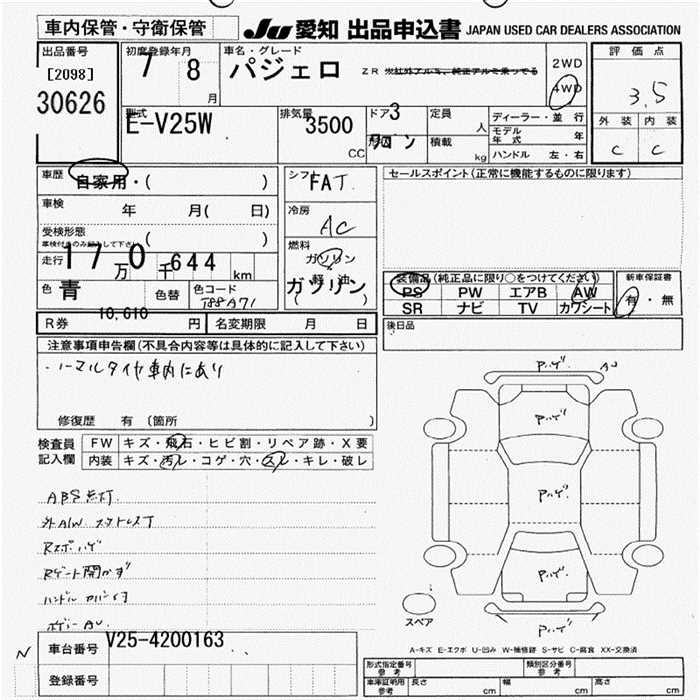 車内保管・守衛保管
JU 愛知 出品申込書 JAPAN USED CAR DEALERS ASSOCIATION
出品番号
[2098]
30626
初度登録年月
7 8 月
車名・グレード
パジェロ ZR
2WD
4WD
評価点
3.5
外装 内装
C C
型式
E-V25W
排気量
3500
CC
ドア 3
形状 ワゴン
定員 人
積載 kg
ディーラー・並行
モデル年式 年
ハンドル 左・右
車歴
自家用・( )
車検 年 月( 日)
受検形態 ( )
車検付きのみ記入して下さい
走行 17万0千644 km
色 青 色替 色コード T88A71
シフト FAT
冷房 AC
燃料 ガソリン
軽油
ガソリン
( )
セールスポイント(正常に機能するものに限ります)
装備品(純正品に限り○をつけてください)
PS PW エアB AW
SR ナビ TV カワシート
新車保証書
有・無
後日品
R券 10,610 円 名変期限 月 日
注意事項申告欄(不具合内容等は具体的に記入して下さい)
・ノーマルタイヤ車内にあり
修復歴 有 (箇所 )
検査員記入欄
FW キズ・飛石・ヒビ割・リペア跡・X要
内装 キズ・汚レ・コゲ・穴・スレ・キレ・破レ
ABS点灯
外A/W スタットレスT
Rスポハゲ
Rゲート開かず
ボディーAU
アハゲ AU
アハゲ
Aハゲ
アハゲ
アハゲ
スペア
A-キズ E-エクボ U-凹み W-補修跡 S-サビ C-腐食 XX-交換済
N
車台番号 V25-4200163
登録番号
形式指定番号 参考
類別区分番号
車庫証明用 参考 長さ cm 幅 cm 高さ cm